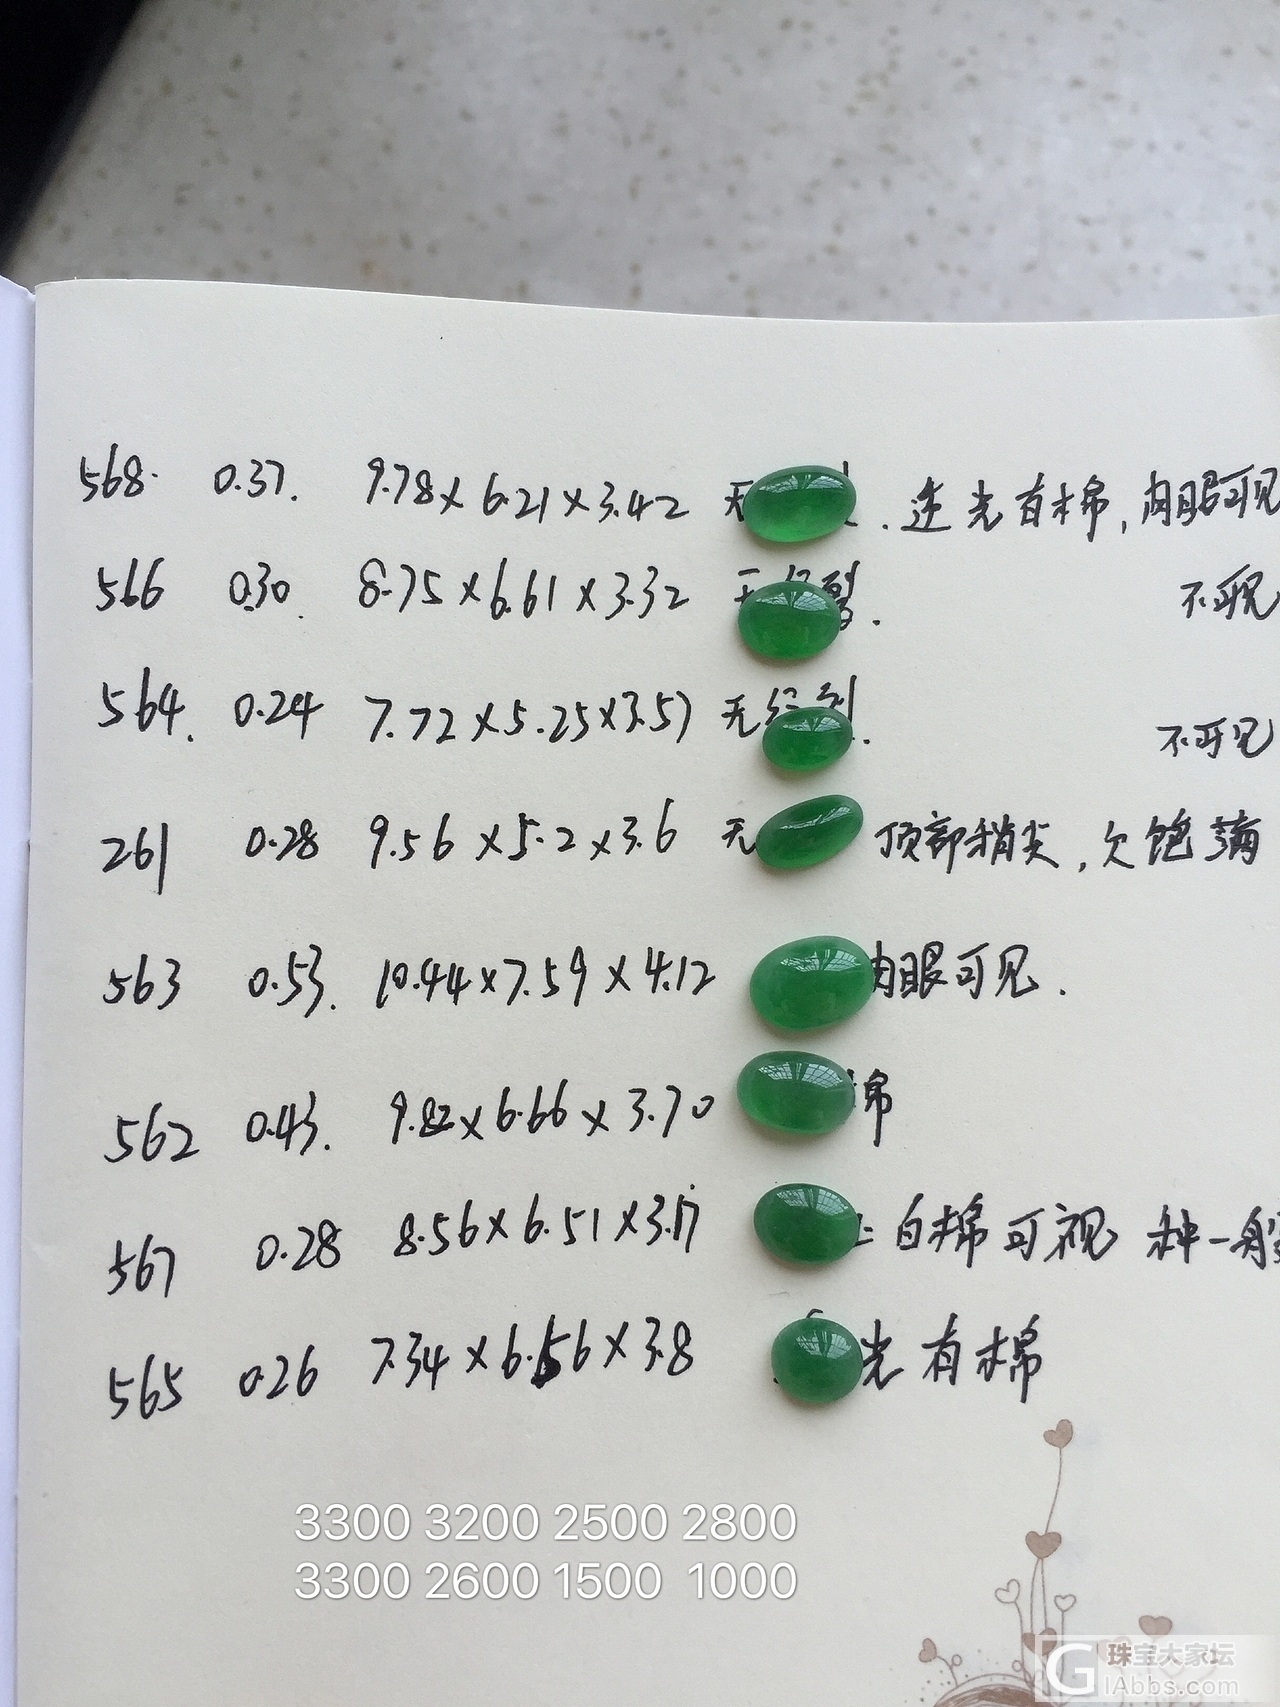 568. 0.37. 9.78×6.21×3.42 无 . 逆光有棉, 肉眼可见
566 0.30. 8.75×6.61×3.32 无纹裂. 不可见
564. 0.24 7.72×5.25×3.57 无纹裂. 不可见
261 0.28 9.56×5.2×3.6 无 顶部稍尖, 欠饱满
563 0.53. 10.44×7.59×4.12 肉眼可见.
562 0.43. 9.82×6.66×3.70 棉
567 0.28 8.56×6.51×3.17 白棉可视 种一般
565 0.26 7.34×6.56×3.8 光有棉
3300 3200 2500 2800
3300 2600 1500 1000
G 珠宝大家坛
GIAbbs.com